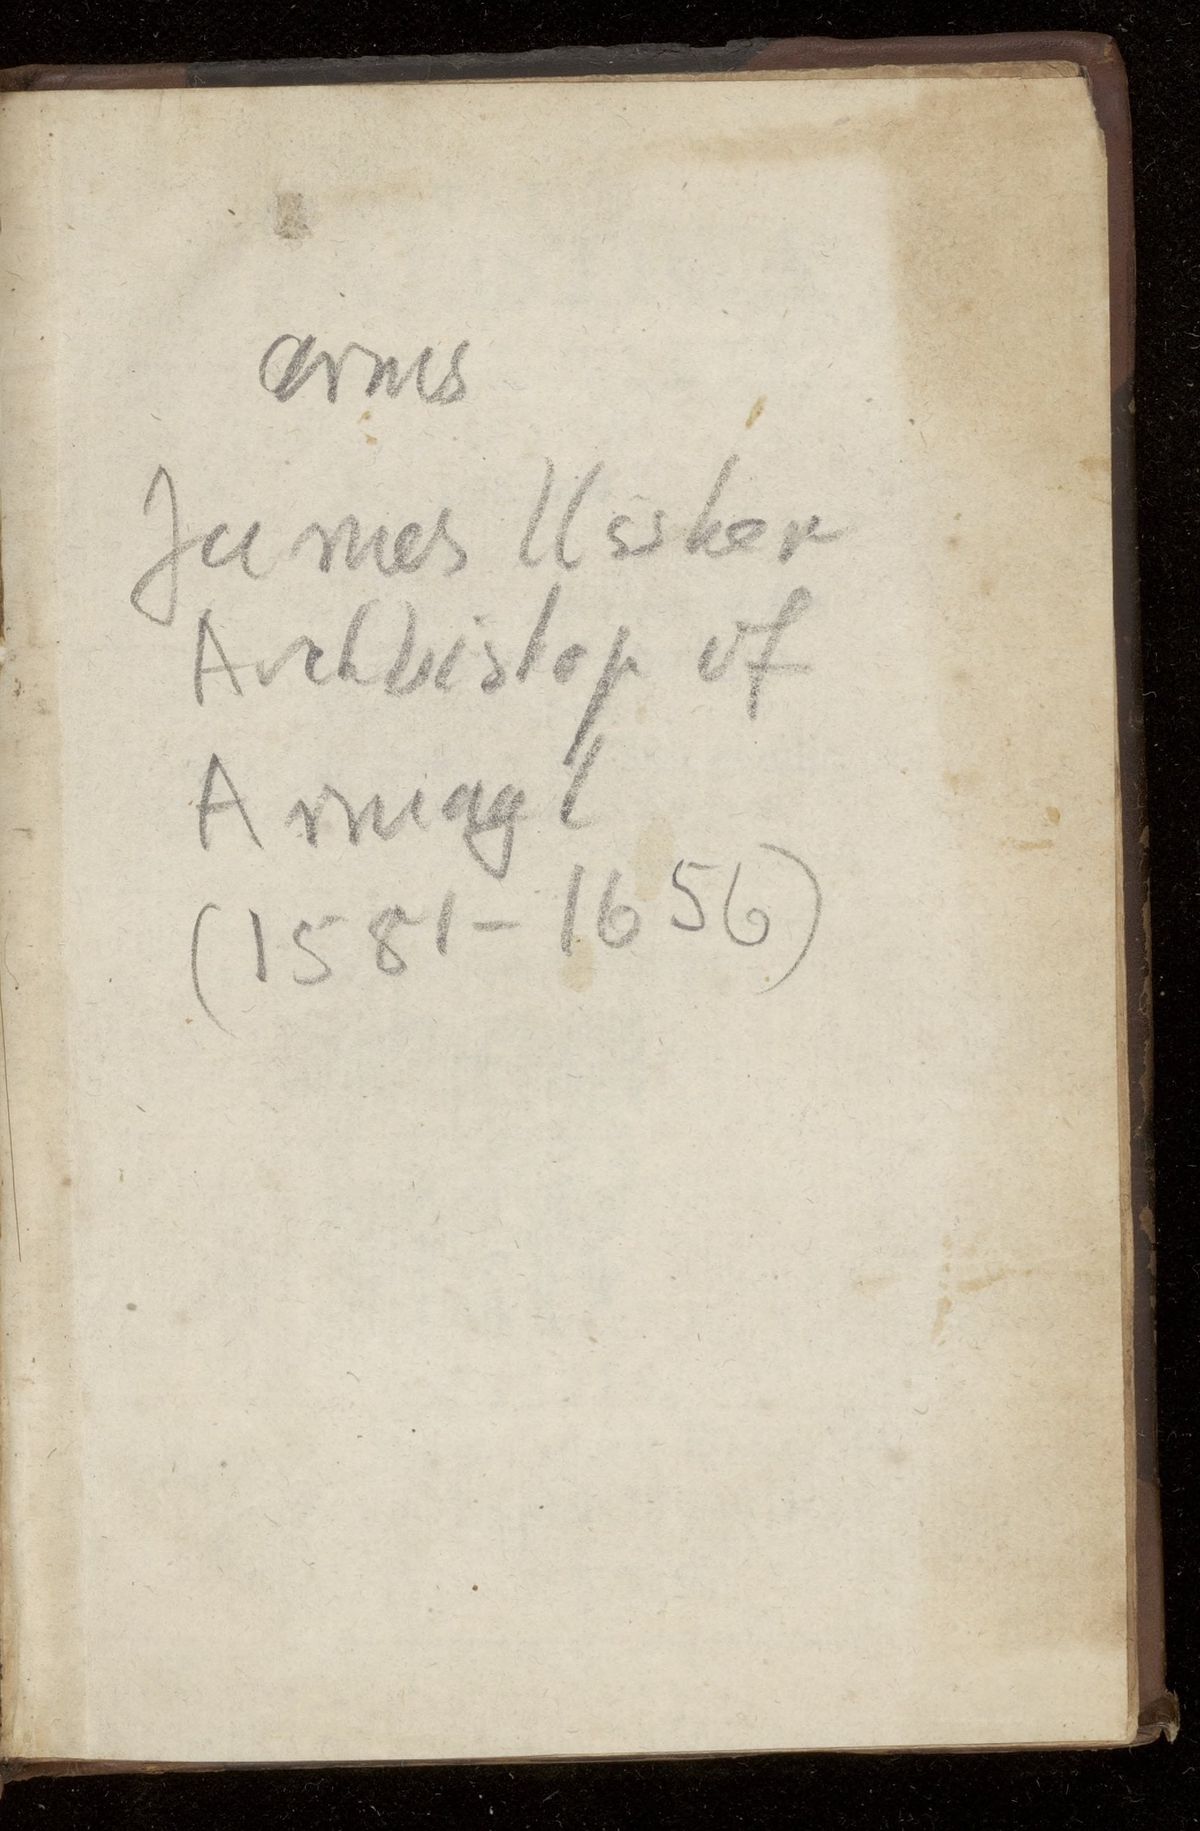 arms
James Ussher
Archbishop of
Armagh
(1581-1656)